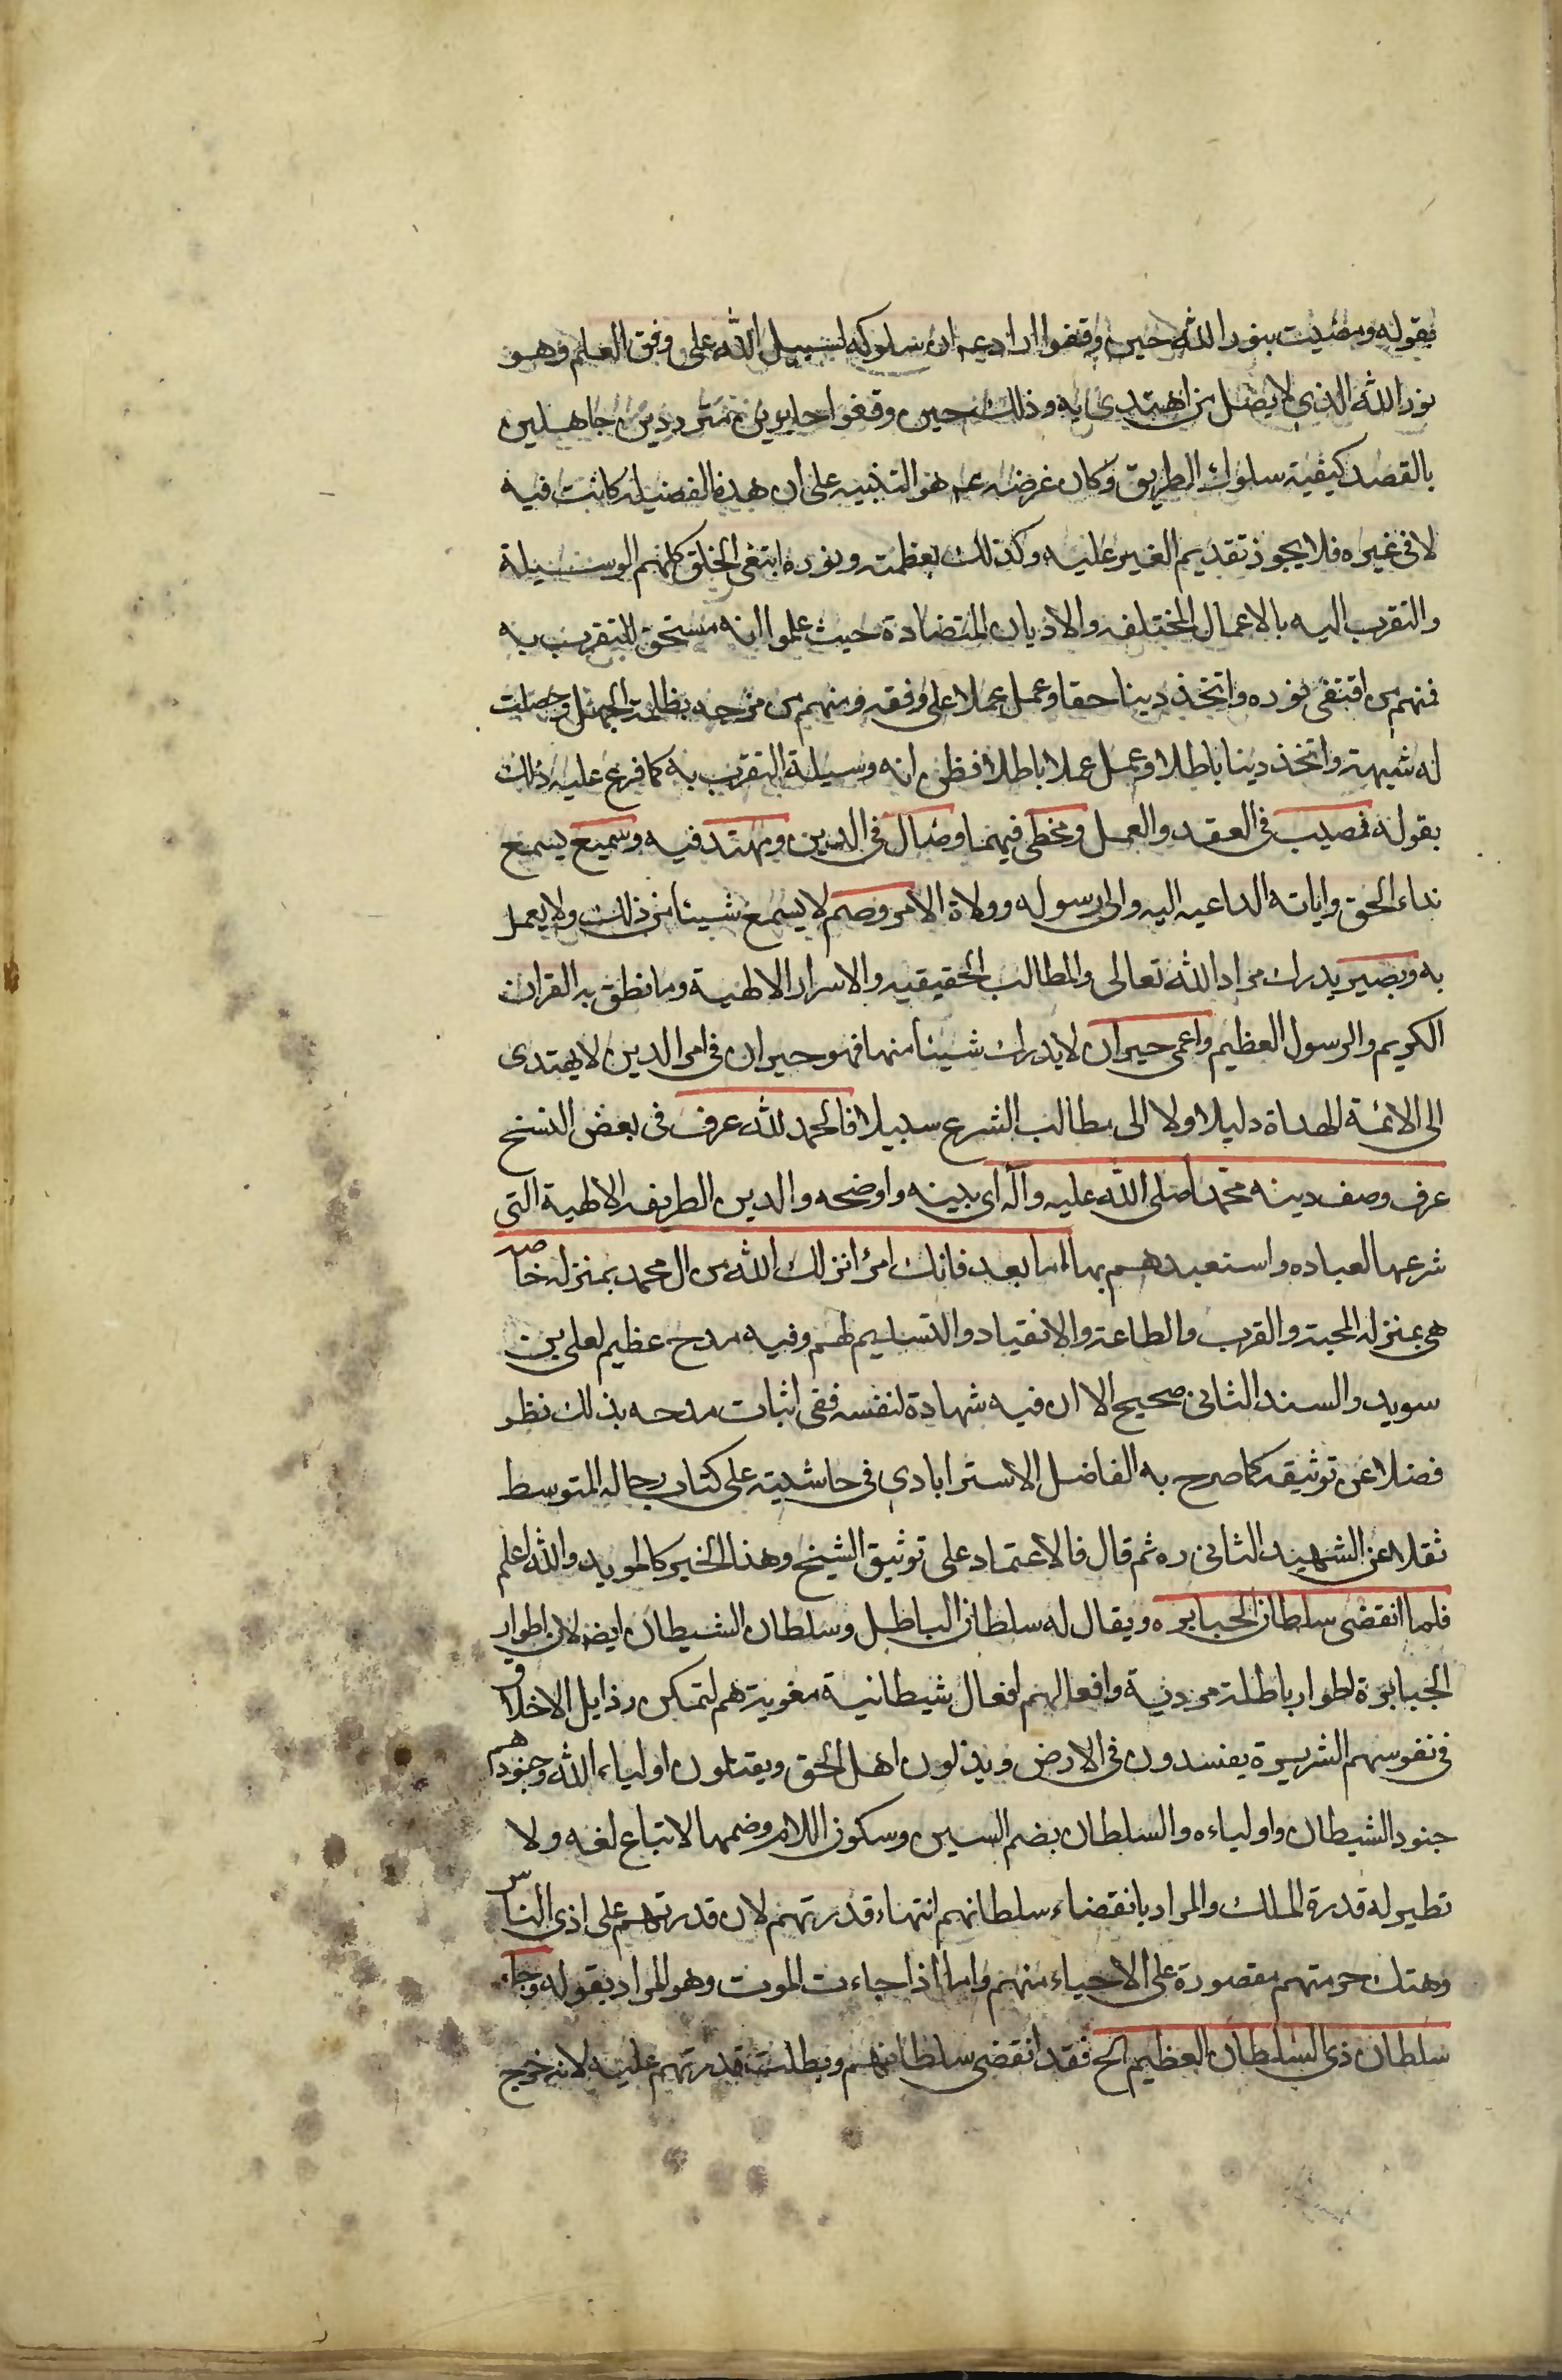 بقوله ومضيت بنور الله حين وقفوا اراد عم ان سلوكه لسبيل الله على وفق العلم وهو
نور الله الذي لا يضل من اهتدى به وذلك حين وقفوا حايرين مترددين جاهلين
بالقصد كيفية سلوك الطريق وكان غرضه عم هو التنبيه على ان هذه الفضيلة كانت فيه
لا في غيره فلا يجوز تقديم الغير عليه وكذلك بعظمته ونوره ابتغى الخلق كلهم الوسيلة
والتقرب اليه بالاعمال المختلفه والاديان المتضادة حيث علموا انه مستحق للتقرب به
فمنهم من اقتفى نوره واتخذ دينا حقا وعمل عملا على وفقه ومنهم من مزجه بظلمة الجهل وحصلت
له شبهة واتخذ دينا باطلا وعمل عملا باطلا فظن انه وسيلة التقرب به كما فرع عليه ذلك
بقوله فمصيب في العقد والعمل ومخطى فيهما وضال في الدين ومهتد فيه وسميع يسمع
نداء الحق واياته الداعيه اليه والى رسوله وولاة الامر وصم لا يسمع شيئا من ذلك ولا يعمل
به وبصير يدرك مراد الله تعالى والمطالب الحقيقيه والاسرار الالهية وما نطق به القران
الكريم والرسول العظيم واعمى حيران لا يدرك شيئا منها فهو حيران في امر الدين لا يهتدى
الى الائمة الهداة دليلا ولا الى مطالب الشرع سبيلا فالحمد لله عرف في بعض النسخ
عرف وصف دينه محمدا صلى الله عليه وآله اى بينه واوضحه والدين الطريقه الالهية التى
شرعها لعباده واستعبدهم بها اما بعد فانك امرؤ انزلك الله من ال محمد بمنزلة خاصه
هى بمنزلة المحبة والقرب والطاعة والانقياد والتسليم لهم وفيه مدح عظيم لعلى بن
سويد والسند الثانى صحيح الا ان فيه شهادة لنفسه ففى اثبات مدحه بذلك نظر
فضلا عن توثيقه كما صرح به الفاضل الاسترابادى في حاشيته على كتاب رجاله المتوسط
نقلا عن الشهيد الثانى ره ثم قال فالاعتماد على توثيق الشيخ وهذا الخبر كالمويد والله اعلم
فلما انقضى سلطان الجبابره ويقال له سلطان الباطل وسلطان الشيطان ايض لان اطوار
الجبابرة اطوار باطلة مردية وافعالهم افعال شيطانية مغوية هم لتمكن رذايل الاخلاق
في نفوسهم الشريرة يفسدون في الارض ويذلون اهل الحق ويقتلون اولياء الله وجنودهم
جنود الشيطان واولياءه والسلطان بضم السين وسكون اللام وضمها لاتباع لغه ولا
نظير له قدرة الملك والمراد بانقضاء سلطانهم انتهاء قدرتهم لان قدرتهم على اذى الناس
وهتك حرمتهم مقصورة على الاحياء منهم واما اذا جاءت الموت وهو المراد بقوله وجاء
سلطان ذى السلطان العظيم الخ فقد انقضى سلطانهم وبطلت قدرتهم عليه لانه خرج